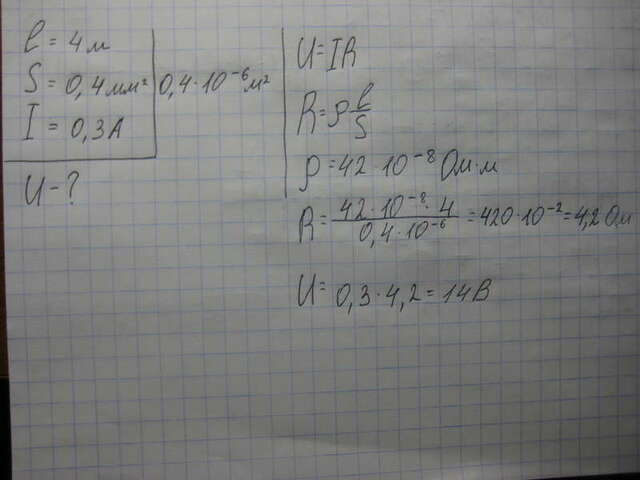 l = 4 м
S = 0,4 мм² 0,4·10⁻⁶ м²
I = 0,3 А
U - ?
U = IR
R = ρ l/S
ρ = 42·10⁻⁸ Ом·м
R = 42·10⁻⁸·4 / 0,4·10⁻⁶ = 420·10⁻² = 4,2 Ом
U = 0,3·4,2 = 14 В